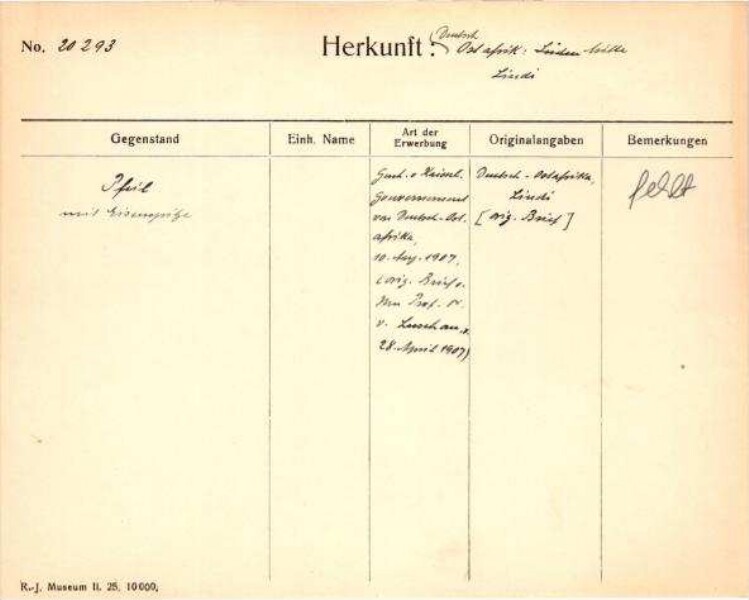 No. 20293
Herkunft: Deutsch Ostafrik:
Lindi
Gegenstand
Einh. Name
Art der Erwerbung
Originalangaben
Bemerkungen
Pfeil
mit Eisenspitze
Gesch. v. Kaiserl.
Gouvernement
von Deutsch-Ost-
afrika,
10. Aug. 1907,
(orig. Brief v.
Hrn Prof. Dr.
v. Luschan v.
28. April 1907)
Deutsch-Ostafrika,
Lindi
[orig. Brief]
fehlt
R.-J. Museum II. 25. 10000,